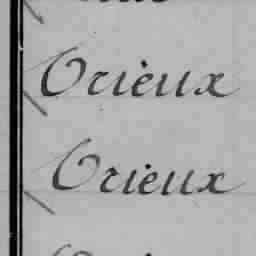 Orieux
Orieux